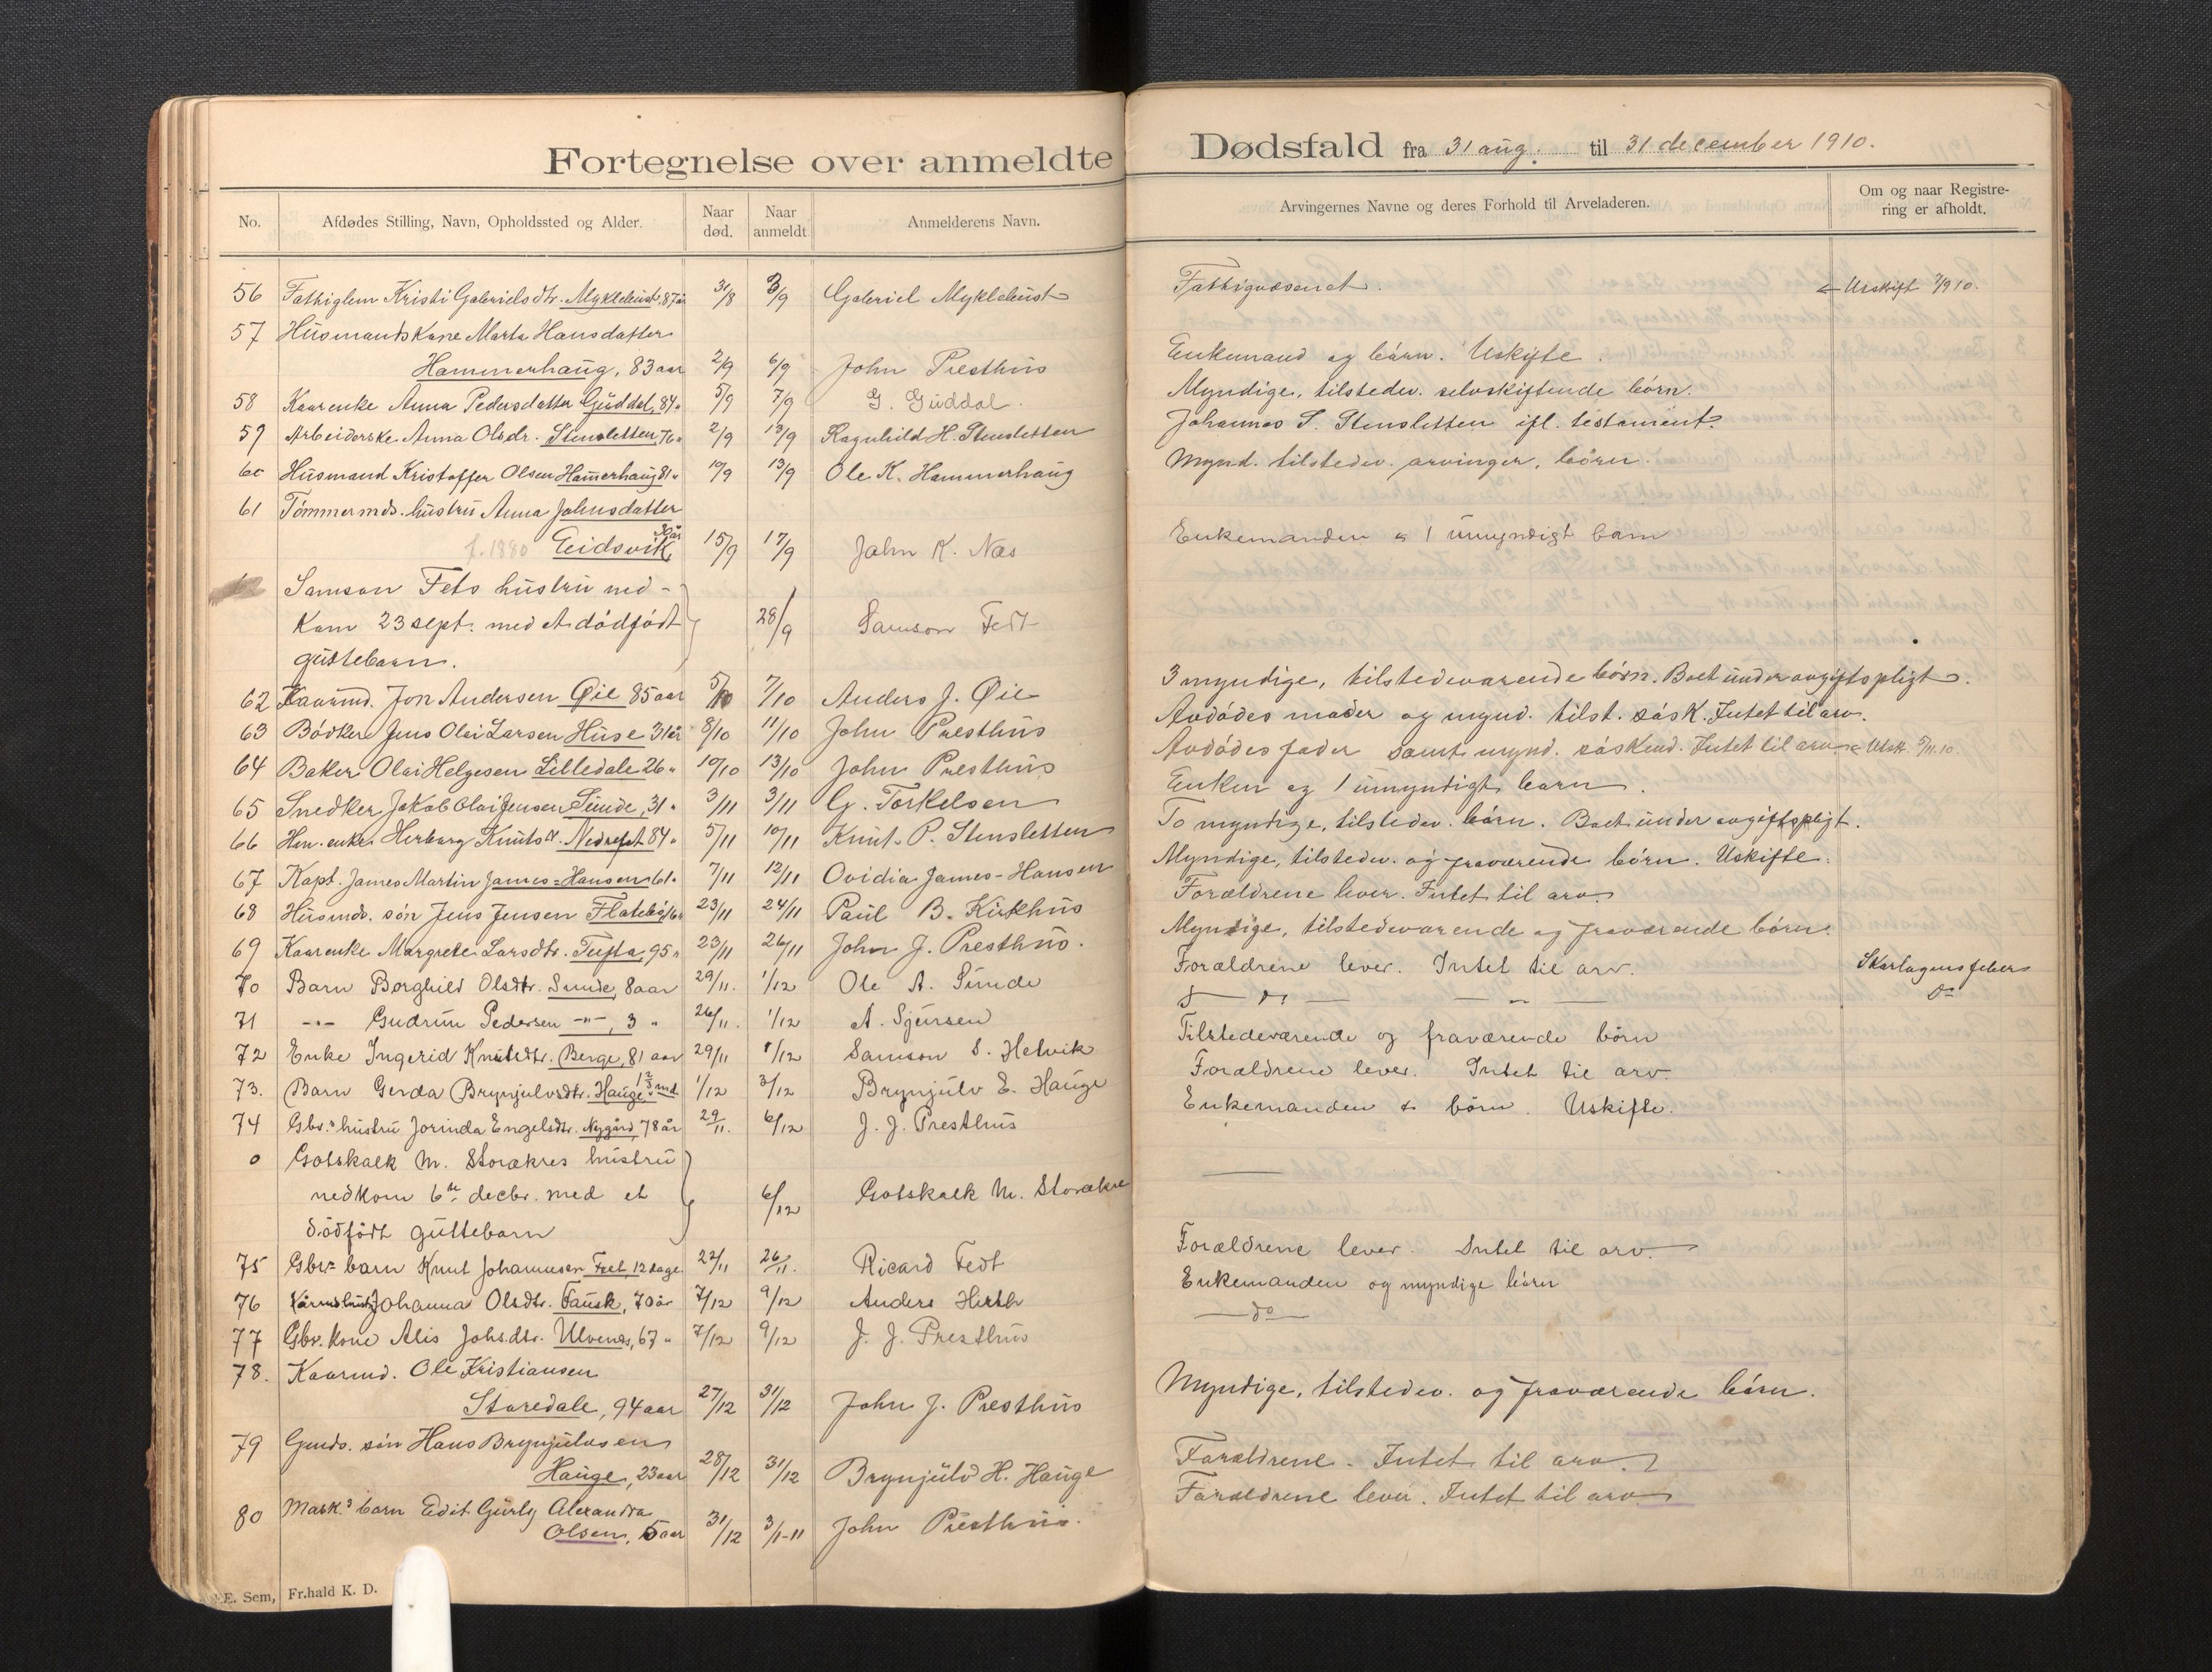 Fortegnelse over anmeldte Dødsfald fra 31 aug. til 31 december 1910.
No. Afdødes Stilling, Navn, Opholdssted og Alder. Naar død. Naar anmeldt. Anmelderens Navn. Arvingernes Navne og deres Forhold til Arveladeren. Om og naar Registrering er afholdt.
56 Fattiglem Kristi Gabrielsdtr. Myklebust, 87 år 31/8 3/9 Gabriel Myklebust Fattigvæsenet. Uskift 7/9 10.
57 Husmandskone Marta Hansdatter
Hammerhaug, 83 aar 2/9 6/9 John Presthus Enkemand og børn. Uskifte.
58 Kaarenke Anna Pedersdatter Guddal, 84 " 5/9 7/9 G. Guddal. Myndige, tilstedev. selvskiftende børn.
59 Arbeiderske Anna Olsdr. Stensletten, 76 " 2/9 13/9 Ragnhild H. Stensletten Johannes S. Stensletten ifl. testament.
60 Husmand Kristoffer Olsen Hammerhaug 81 " 10/9 13/9 Ole K. Hammerhaug Mynd. tilstedev. arvinger, børn.
61 Tømmermds. hustru Anna Johnsdatter
f. 1880 Eidsvik, 30 år 15/9 17/9 John K. Næs Enkemanden & 1 umyndigt barn
Samson Fets hustru ned-
kom 23 sept. med et dødfødt 28/9 Samson Fedt
guttebarn.
62 Kaarmd. Jon Andersen Øie 85 aar 5/10 7/10 Anders J. Øie 3 myndige, tilstedeværende børn. Boet under avgiftspligt.
63 Bødker Jens Olai Larsen Huse 31 år 8/10 11/10 John Presthus Avdødes moder og mynd. tilst. søsk. Intet til arv.
64 Baker Olai Helgesen Lilledale 26 " 10/10 13/10 John Presthus Avdødes fader samt mynd. søskend. Intet til arv. Utsk. 5/11.10.
65 Snedker Jakob Olai Jensen Sunde, 31 " 3/11 3/11 G. Torkelsen Enken og 1 umyndigt barn.
66 Hm. enke Herborg Knutsdt. Nedrefet 84 " 5/11 10/11 Knut P. Stensletten To myndige, tilstedev. børn. Boet under avgiftspligt.
67 Kapt. James Martin James-Hansen 61 " 7/11 12/11 Ovidia James-Hansen Myndige, tilstedev. og fraværende børn. Uskifte.
68 Husmds. søn Jens Jensen Flatebø 16 " 23/11 24/11 Paul B. Kirkhus Forældrene lever. Intet til arv.
69 Kaarenke Margrete Larsdtr. Tufta, 95 " 23/11 26/11 John J. Presthus. Myndige, tilstedeværende og fraværende børn.
70 Barn Borghild Olsdtr. Sunde, 8 aar 29/11. 1/12 Ole A. Sunde Forældrene lever. Intet til arv. Skarlagensfeber
71 -"- Gudrun Pedersen -"-, 3 " 26/11. 1/12 A. Sjursen — do — — " — do
72 Enke Ingerid Knutsdtr. Berge, 81 aar 29/11 1/12 Samson S. Helvik Tilstedeværende og fraværende børn
73. Barn Gerda Brynjulvsdtr. Hauge, 1 2/3 md. 1/12 3/12 Brynjulv E. Hauge Forældrene lever. Intet til arv.
74 Gbr.s hustru Jorinda Engelsdtr. Nygård, 78 år 29/11. 6/12 J. J. Presthus Enkemanden & børn. Uskifte.
0 Gotskalk M. Storækres hustru
nedkom 6te decbr. med et 6/12 Gotskalk M. Storækre —
dødfødt guttebarn
75 Gbrs barn Knut Johannesen Fret, 12 dage 22/11 26/11. Ricard Fedt Forældrene lever. Intet til arv.
76 Kårmds hustr. Johanna Olsdtr. Fausk, 70 år 7/12 9/12 Anders Hirth Enkemanden og myndige børn
77 Gbr. kone Alis Johs.dtr. Ulvenes, 67 " 7/12 9/12 J. J. Presthus — do —
78. Kaarmd. Ole Kristiansen
Staredale, 94 aar 27/12 31/12 John J. Presthus Myndige, tilstedev. og fraværende børn.
79 Gmds. søn Hans Brynjulvsen
Hauge, 23 aar 28/12 31/12 Brynjulv H. Hauge Forældrene. Intet til arv.
80 Mask.s barn Edit Gurly Alexandra
Olsen, 5 aar 31/12 3/1-11 John Presthus. Forældrene lever. Intet til arv
E. Sem, Fr.hald K. D.